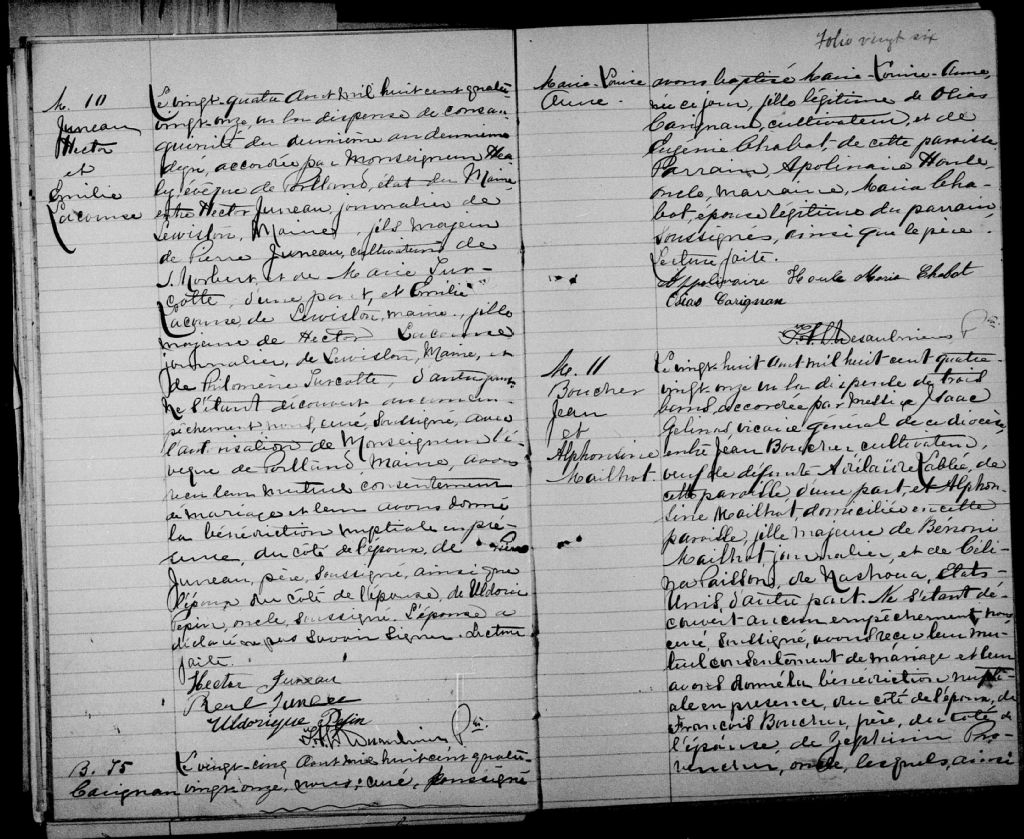 M. 10
Juneau
Hector
et
Emilie
Lacourse
Le vingt-quatre Aout mil huit cent quatre
vingt-onze, vu la dispense de consan-
guinité du deuxième au deuxième
degré, accordée par Monseigneur Hea-
ly évêque de Portland, état du Maine,
entre Hector Juneau, journalier de
Lewiston, Maine, fils majeur
de Pierre Juneau, cultivateur de
S. Norbert, et de Marie Tur-
cotte, d'une part, et Emilie
Lacourse, de Lewiston, Maine, fille
majeure de Hector Lacourse
journalier, de Lewiston, Maine, et
de Philomène Turcotte, d'autre part
Ne s'étant découvert aucun em-
pêchement nous, curé, soussigné, avec
l'autorisation de Monseigneur l'é-
vêque de Portland, Maine, avons
reçu leur mutuel consentement
de mariage et leur avons donné
la bénédiction nuptiale en pré-
sence, du côté de l'époux, de
Juneau, père, soussigné, ainsi que
l'époux du côté de l'épouse, de Uldoric
Pepin, oncle, soussigné. L'épouse a
déclaré ne pas savoir signer. Lecture
faite.
Hector Juneau
Juneau
Uldorique Pepin
Desaulniers Ptre.
B. 75
Carignan
Le vingt-cinq Aout mil huit cent quatre
vingt-onze, nous, curé, soussigné
Folio vingt six
Marie-Louise
Anne.
avons baptisé Marie-Louise-Anne,
née ce jour, fille légitime de Olias
Carignan, cultivateur, et de
Eugenie Chabot de cette paroisse
Parrain, Apolinaire Houle
oncle, marraine, Maria Cha-
bot, épouse légitime du parrain
soussignés, ainsi que le père.
Lecture faite.
Appolinaire Houle Marie Chabot
Olias Carignan
Desaulniers Ptre.
M. 11
Boucher
Jean
et
Alphonsine
Mailhot.
Le vingt-huit Aout mil huit cent quatre-
vingt-onze vu la dispense de trois
bans, accordée par Messire Isaac
Gelinas, vicaire général de ce diocèse,
entre Jean Boucher, cultivateur,
veuf de défunte Labbée, de
cette paroisse, d'une part, et Alphon-
sine Mailhot, domiciliée en cette
paroisse, fille majeure de Bénoni
Mailhot, journalier, et de Céli-
na, de Nashoua, Etats-
Unis, d'autre part. Ne s'étant dé-
couvert aucun empêchement, nous
curé, soussigné, avons reçu leur mu-
tuel consentement de mariage et leur
avons donné la bénédiction nupti-
ale en présence, du côté de l'époux, de
François Boucher, père, du côté de
l'épouse, de Zephirin Pro-
vencher, oncle, lesquels, ainsi